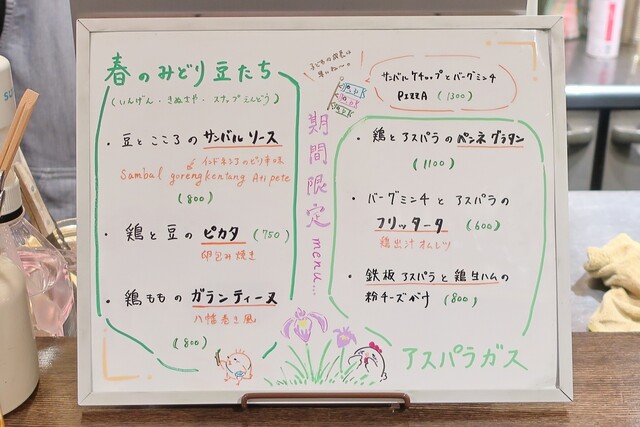 春のみどり豆たち
(いんげん・きぬさや・スナップえんどう)
・豆とこころのサンバルソース
インドネシアのピリ辛味
Sambal goreng kentang Ati pete
(800)
・鶏と豆のピカタ (750)
卵包み焼き
・鶏もものガランティーヌ
八幡巻き風
(800)
期間限定menu...
子どもの成長は
早いね〜。
サンバルケチャップとバーグミンチ
PIZZA (1300)
・鶏とアスパラのペンネグラタン
(1100)
・バーグミンチとアスパラの
フリッタータ (600)
鶏出汁オムレツ
・鉄板アスパラと鶏生ハムの
粉チーズがけ (800)
アスパラガス